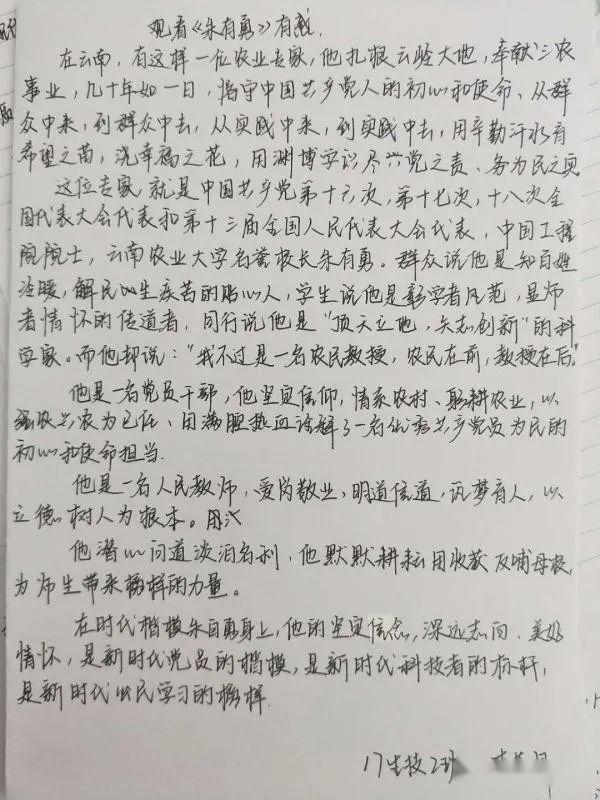 观看《朱有勇》有感.
在云南，有这样一位农业专家，他扎根云岭大地，奉献三农
事业，几十年如一日，恪守中国共产党人的初心和使命、从群
众中来，到群众中去，从实践中来，到实践中去，用辛勤汗水育
希望之苗，浇幸福之花，用渊博学识尽兴党之责、务为民之实
这位专家就是中国共产党第十六次，第十七次，十八次全
国代表大会代表和第十三届全国人民代表大会代表，中国工程
院院士，云南农业大学名誉校长朱有勇。群众说他是知百姓
冷暖，解民生疾苦的贴心人，学生说他是彰学者风范，显师
者情怀的传道者，同行说他是"顶天立地，矢志创新"的科
学家。而他却说："我不过是一名农民教授，农民在前，教授在后。"
他是一名党员干部，他坚定信仰，情系农村、躬耕农业，以
强农兴农为己任、用满腔热血诠解了一名优秀共产党员为民的
初心和使命担当.
他是一名人民教师，爱岗敬业，明道信道，筑梦育人，以
立德树人为根本。用
他潜心问道淡泊名利，他默默耕耘用收获反哺母校，
为师生带来榜样的力量。
在时代楷模朱有勇身上，他的坚定信念，深远志向、美好
情怀，是新时代党员的楷模，是新时代科技者的标杆，
是新时代公民学习的榜样.
17生技2班